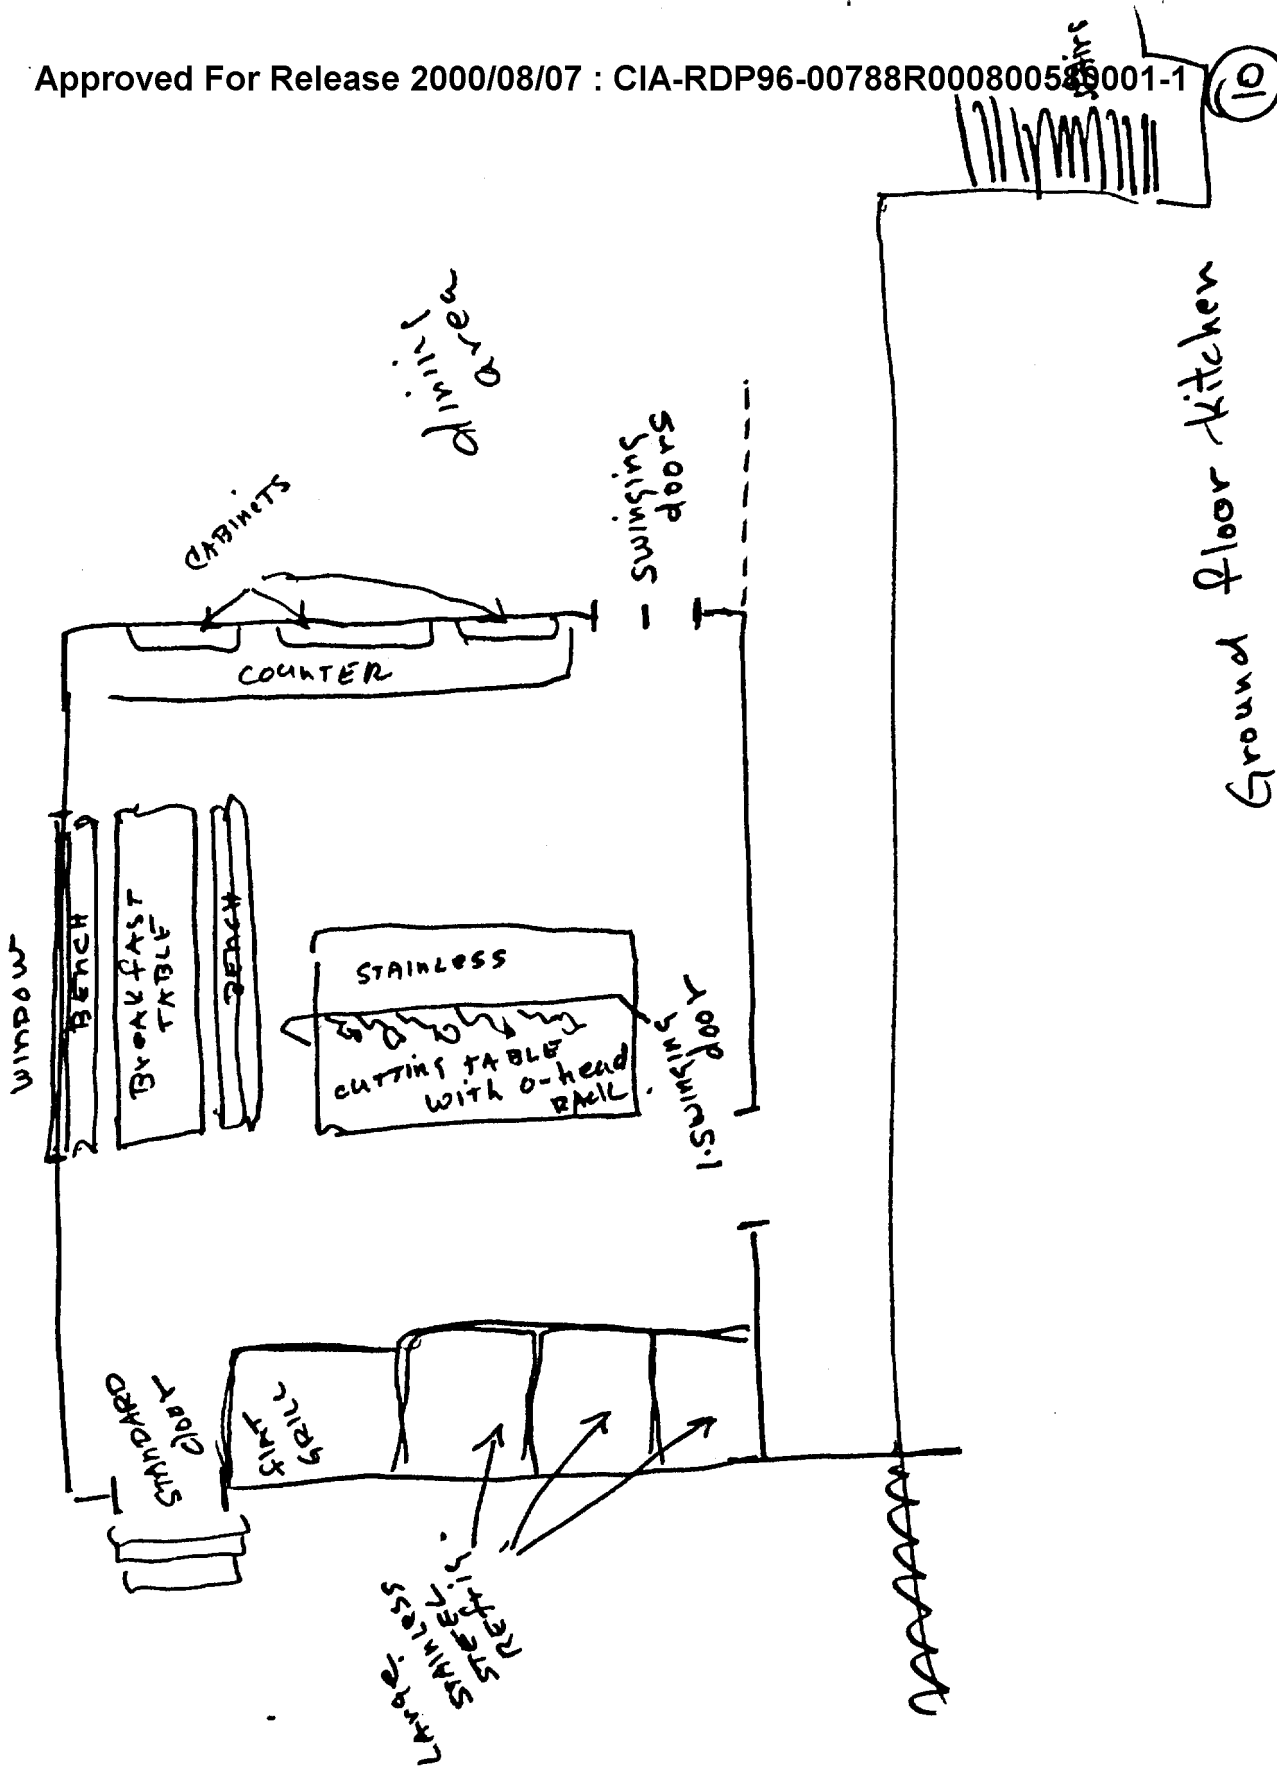 Approved For Release 2000/08/07 : CIA-RDP96-00788R000800580001-1
10
stairs
dining
area
CABINETS
swinging
doors
COUNTER
Ground floor kitchen
WINDOW
BENCH
BreakfAST
TABLE
BENCH
STAINLESS
CUTTING TABLE
with o-head
RACK
1-SWINGING
door
STANDARD
door
flAT
GRILL
LArge
STAINLESS
STEEL
REfrig.